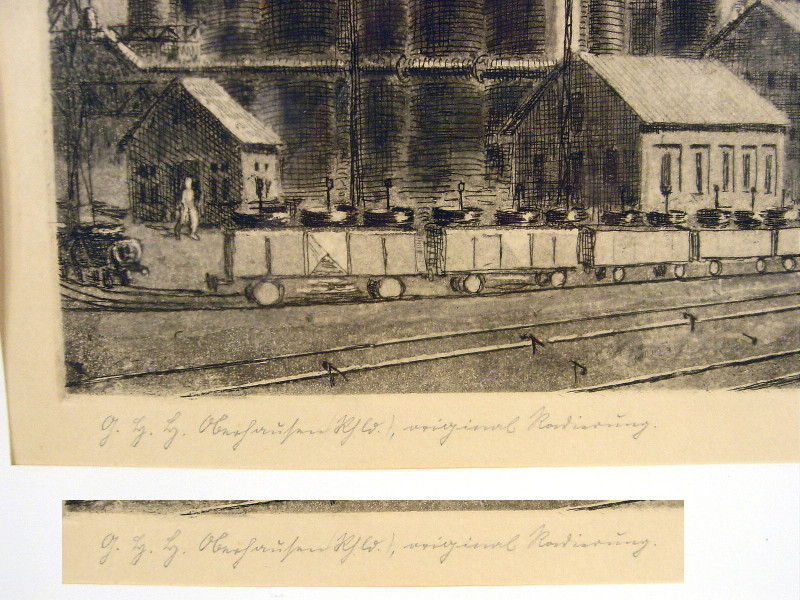 G. H. H. Oberhausen (Rhld.), original Radierung.
G. H. H. Oberhausen (Rhld.), original Radierung.